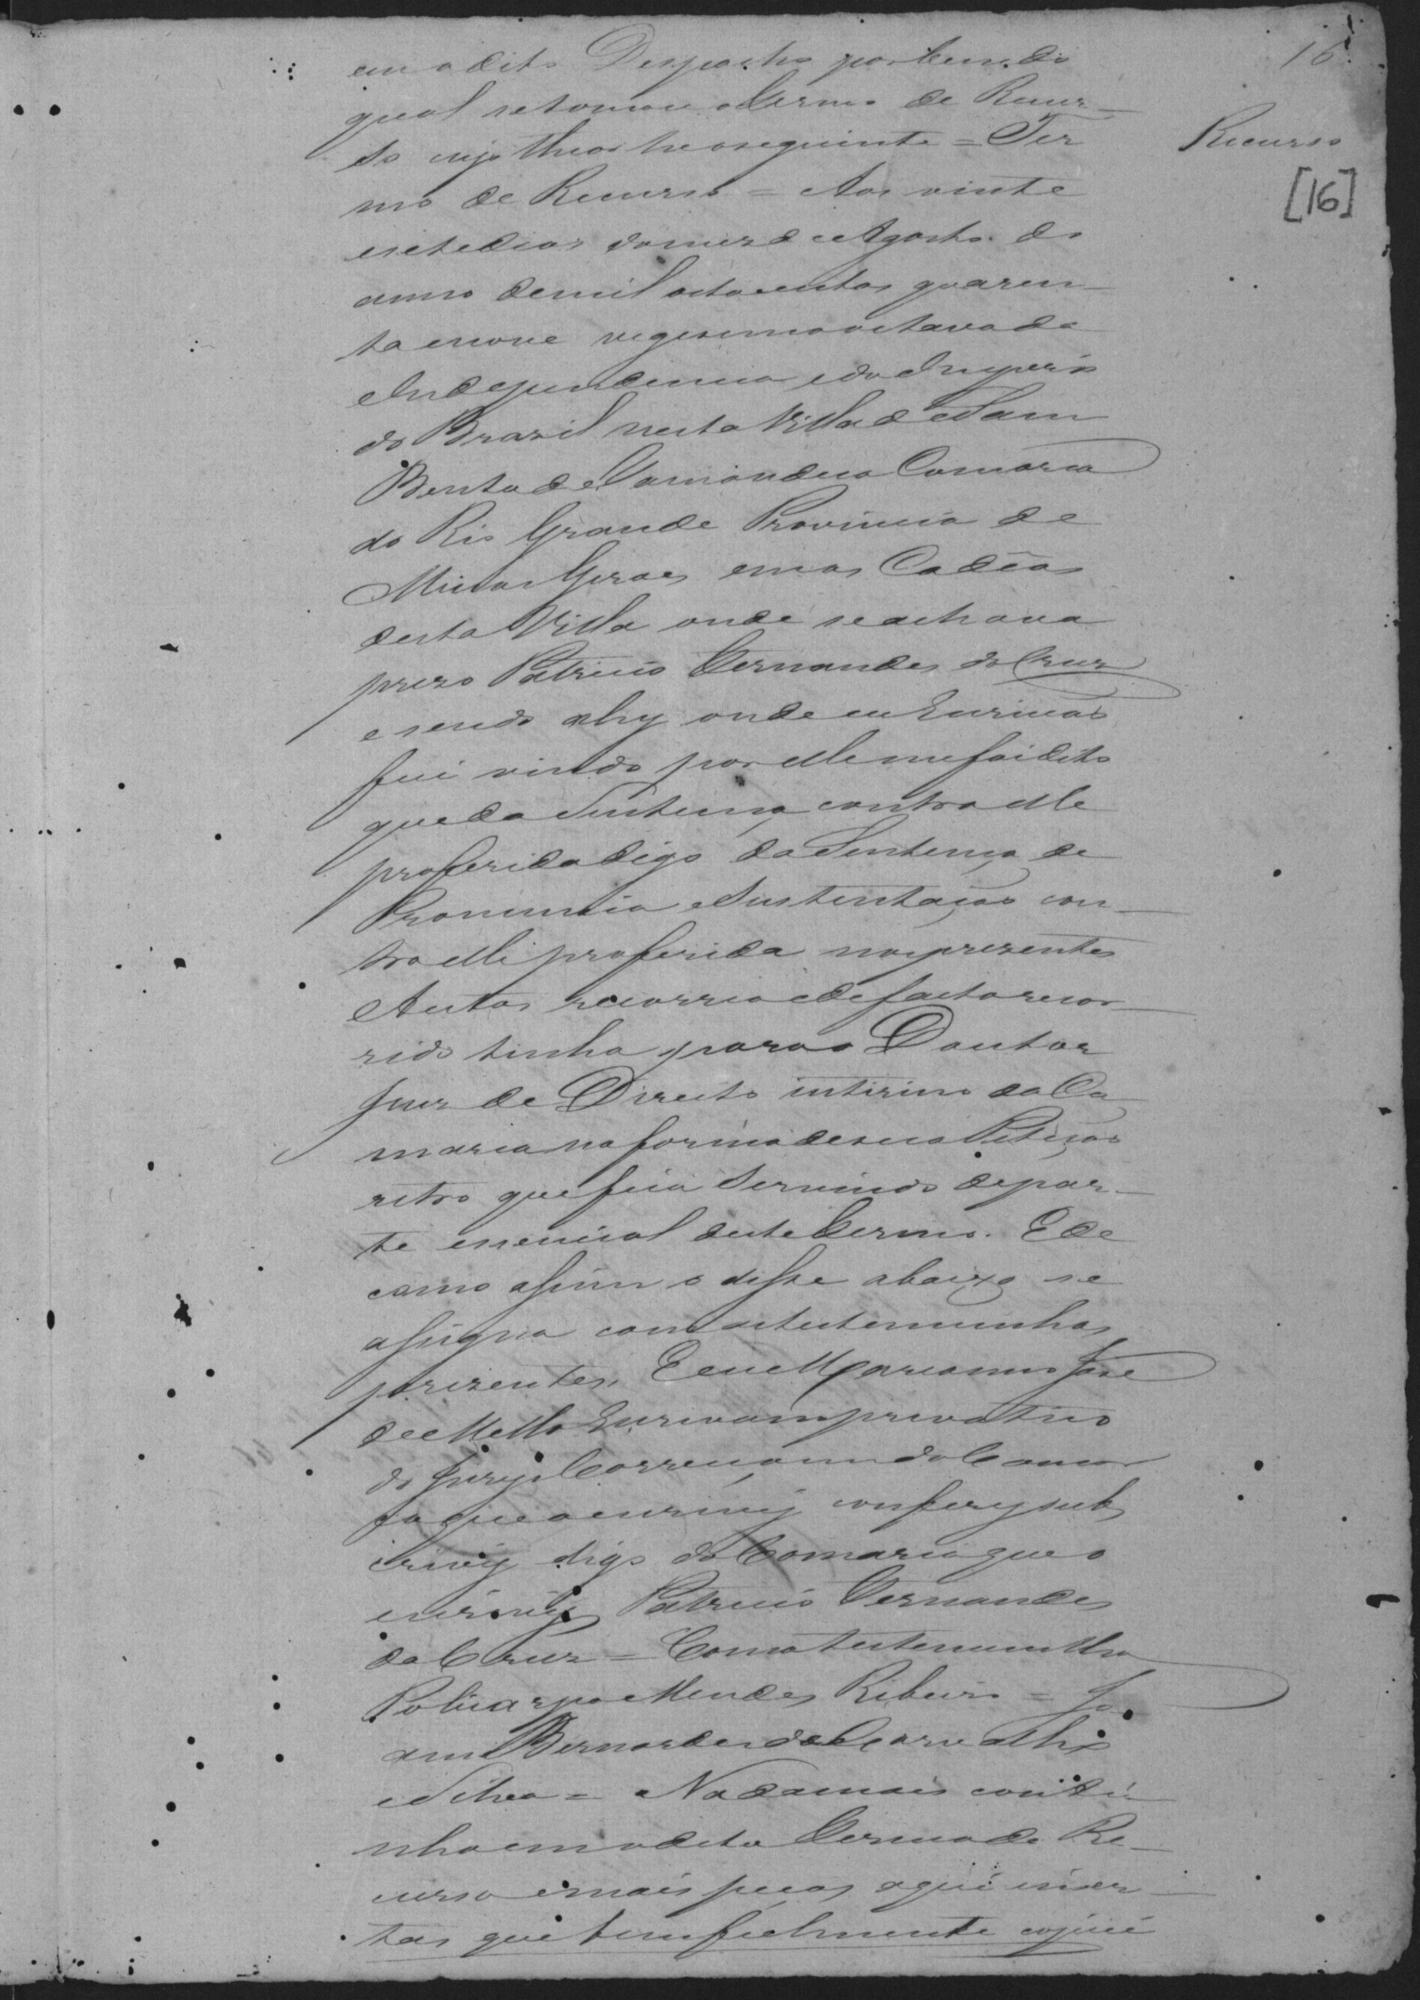 16
em o dito Despacho por bem do
qual se tomou o Termo de Recur-
so cujo theor he o seguinte = Ter
mo de Recurso = Aos vinte
e sete dias do mez de Agosto do
anno de mil oito centos quaren-
ta e nove vigesimo oitavo da
Independencia e do Imperio
do Brazil nesta Villa de Sam
Bento de Tamanduá Comarca
do Rio Grande Provincia de
Minas Geraes em as Cadêas
desta Villa onde se achava
prezo Patricio Fernandes da Cruz
e sendo ahy onde eu Escrivão
fui vindo por elle me foi dito
que da Sentença contra elle
proferida digo da Sentença de
Pronuncia e Sustentação con-
tra elle proferida nos prezentes
Autos recorria e de facto recor-
rido tinha para o Doutor
Juiz de Direito interino da Co
marca na forma de sua Petição
retro que fica servindo de par-
te essencial deste Termo. E de
como assim o disse abaixo se
assigna com as testemunhas
prezentes. E eu Marianno José
de Mello Escrivam privativo
do Jury e Correiçam da Comar
ca que o escrivy confery sub
crivy digo da Comarca que o
escrivy Patricio Fernandes
da Cruz = Como testemunha
Policarpo Mendes Ribeiro = Jo
am Bernardes de Carvalho
e Silva = Nada mais conti-
nha em o dito Termo de Re-
curso e mais peças aqui incer-
tas que bem fielmente copiei
Recurso
[16]